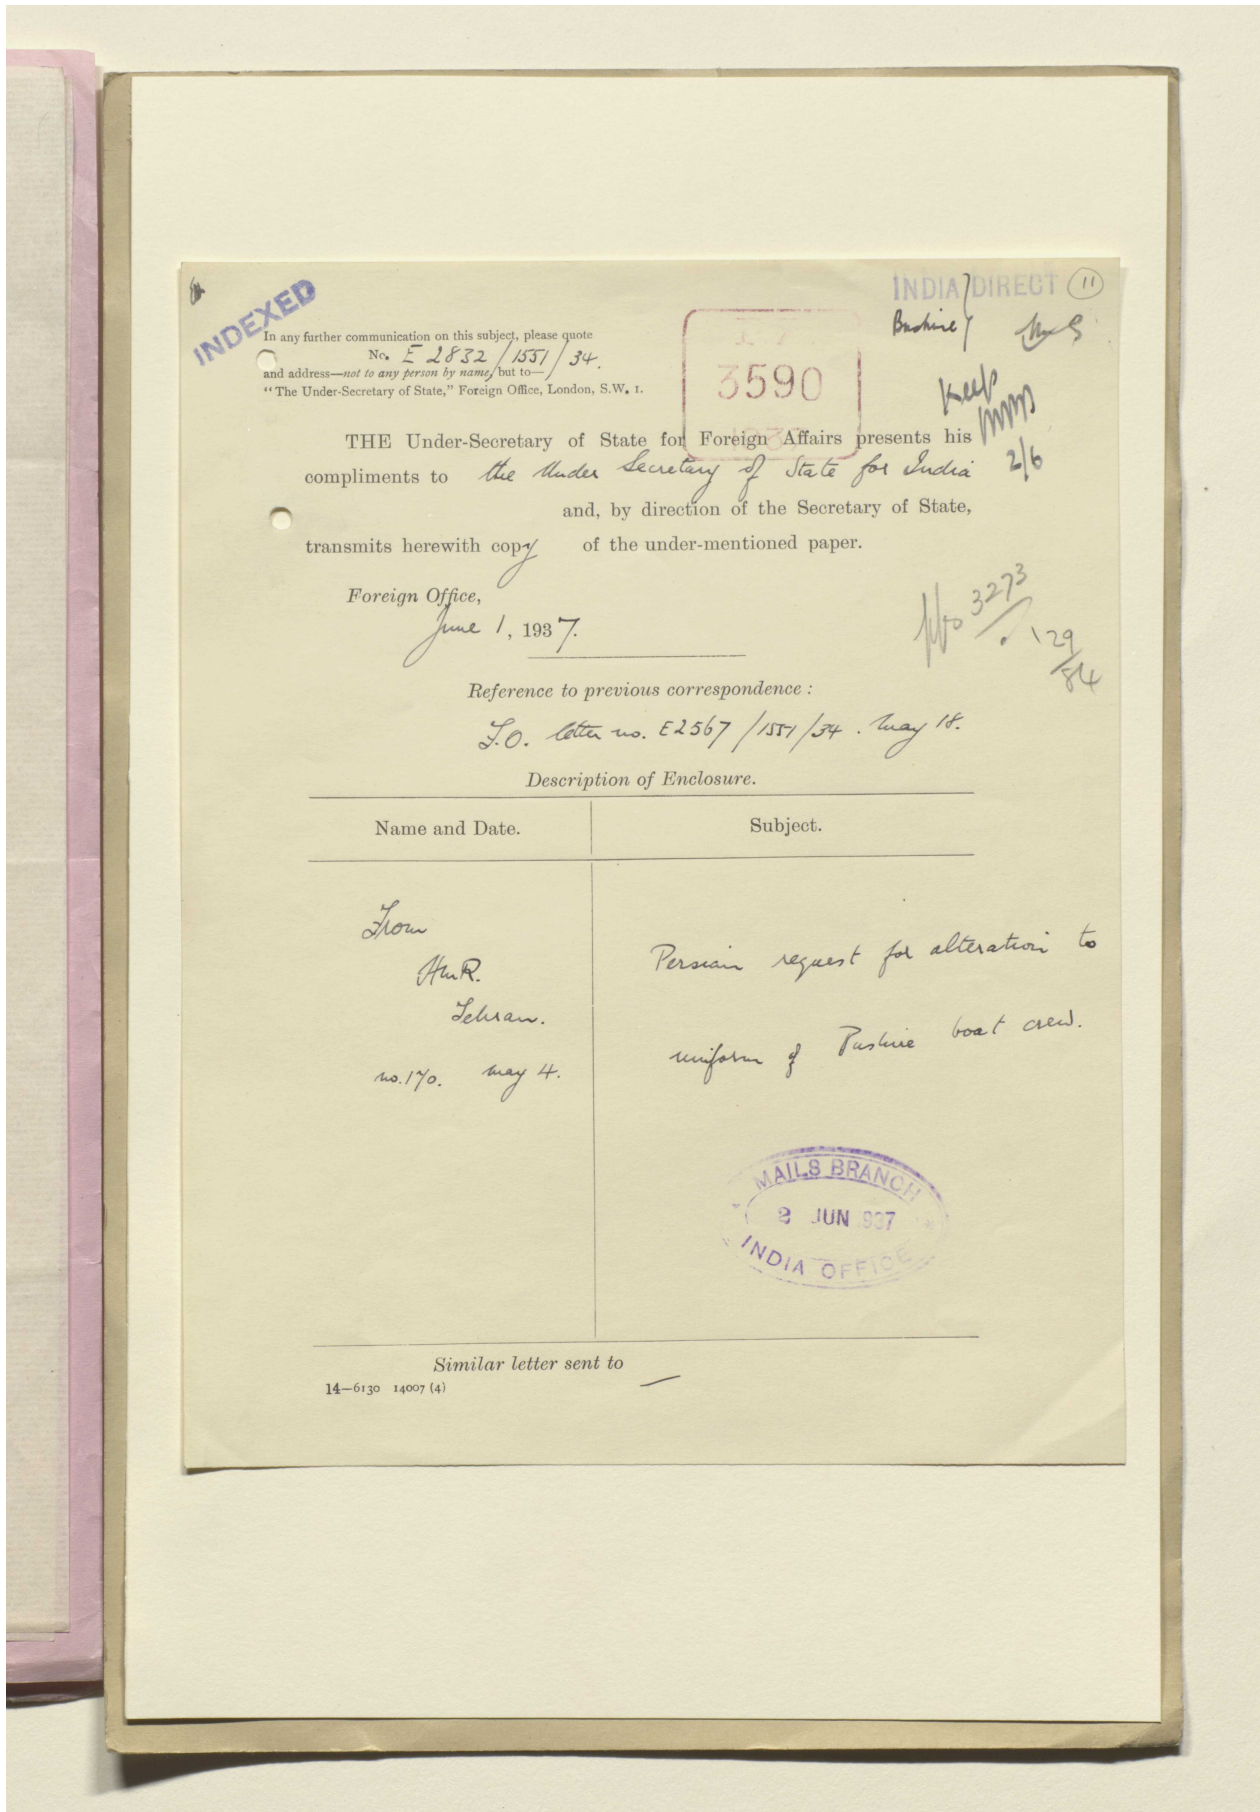 INDEXED
INDIA DIRECT
11
Bushire
In any further communication on this subject, please quote
No. E 2832/1551/34.
and address—not to any person by name, but to—
"The Under-Secretary of State," Foreign Office, London, S.W. 1.
P.Z.
3590
1937
Keep
2/6
THE Under-Secretary of State for Foreign Affairs presents his
compliments to the Under Secretary of State for India
and, by direction of the Secretary of State,
transmits herewith copy of the under-mentioned paper.
3273
129
84
Foreign Office,
June 1, 1937.
Reference to previous correspondence :
F.O. letter no. E2567/1551/34. May 18.
Description of Enclosure.
Name and Date.
Subject.
From
HMR.
Tehran.
no. 170. May 4.
Persian request for alteration to
uniform of Bushire boat crew.
MAILS BRANCH
2 JUN 937
INDIA OFFICE
Similar letter sent to —
14—6130 14007 (4)